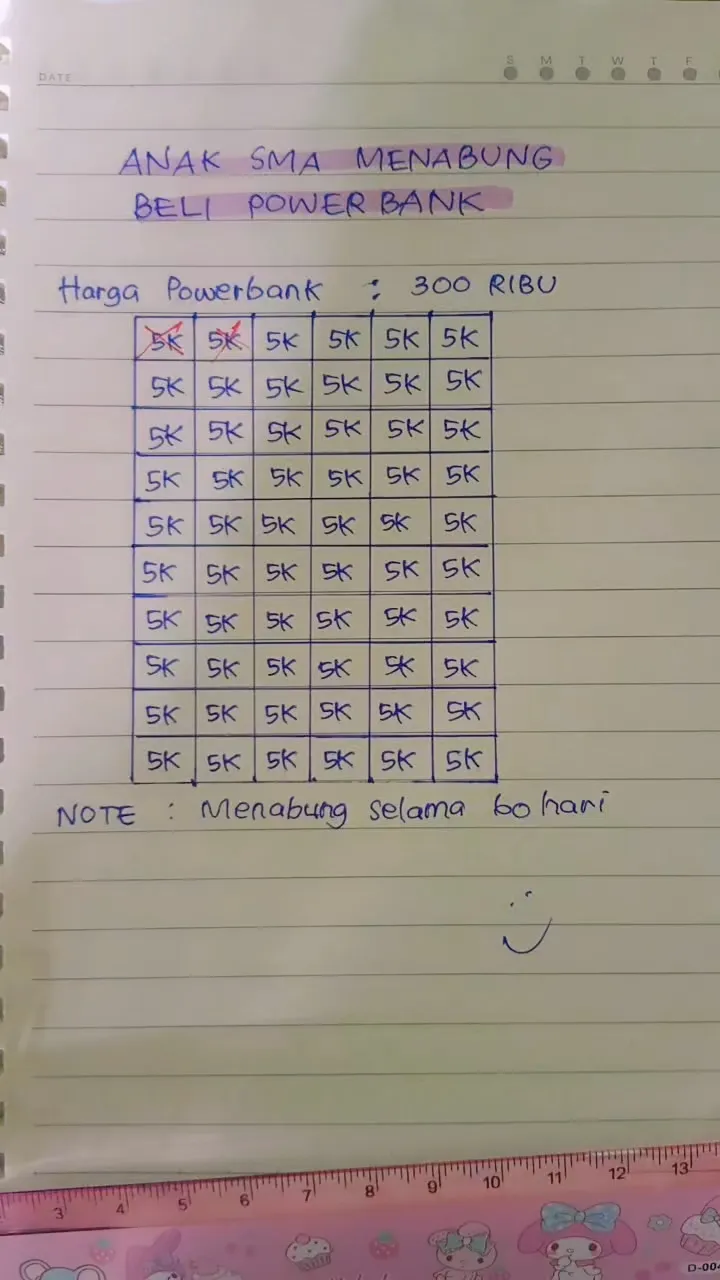 DATE
S M T W T F
ANAK SMA MENABUNG
BELI POWER BANK
Harga Powerbank : 300 RIBU
5K 5K 5K 5K 5K 5K
5K 5K 5K 5K 5K 5K
5K 5K 5K 5K 5K 5K
5K 5K 5K 5K 5K 5K
5K 5K 5K 5K 5K 5K
5K 5K 5K 5K 5K 5K
5K 5K 5K 5K 5K 5K
5K 5K 5K 5K 5K 5K
5K 5K 5K 5K 5K 5K
5K 5K 5K 5K 5K 5K
NOTE : Menabung selama 60 hari
3 4 5 6 7 8 9 10 11 12 13